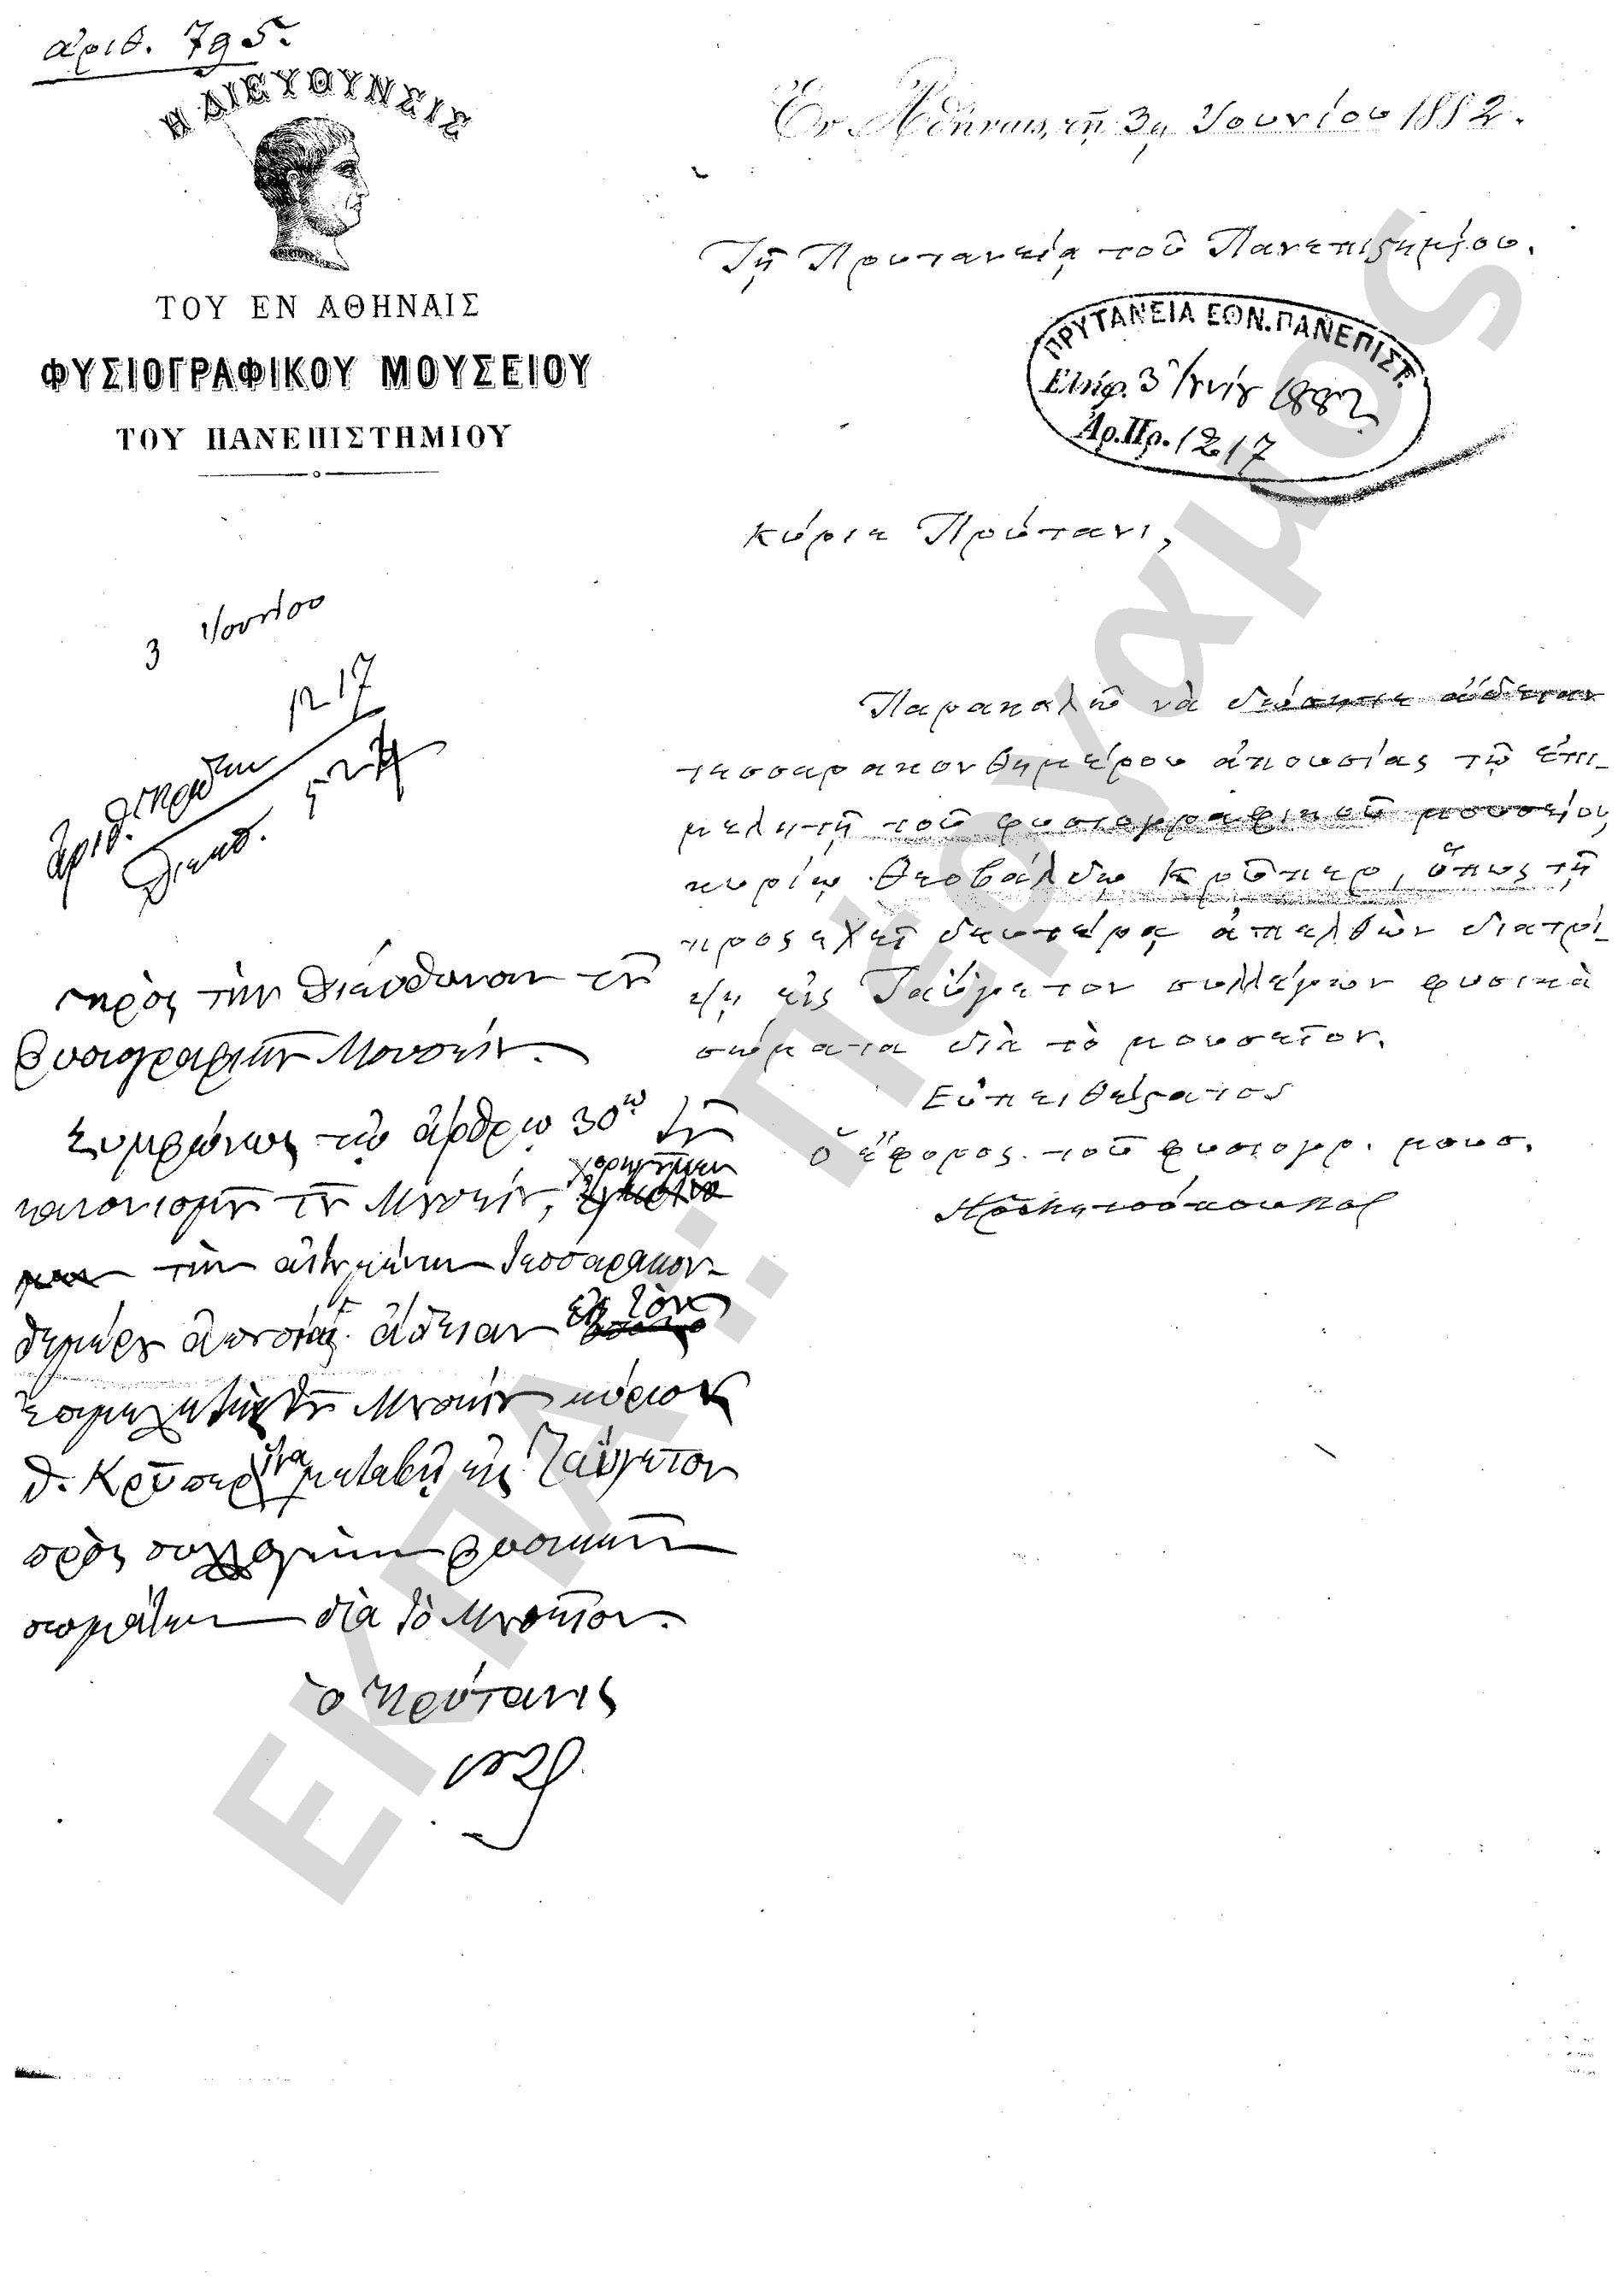 ἀριθ. 795.
Η ΔΙΕΥΘΥΝΣΙΣ
ΤΟΥ ΕΝ ΑΘΗΝΑΙΣ
ΦΥΣΙΟΓΡΑΦΙΚΟΥ ΜΟΥΣΕΙΟΥ
ΤΟΥ ΠΑΝΕΠΙΣΤΗΜΙΟΥ
Ἐν Ἀθήναις, τῇ 3ῃ Ἰουνίου 1882.
Τῇ Πρυτανείᾳ τοῦ Πανεπιστημίου.
ΠΡΥΤΑΝΕΙΑ ΕΘΝ. ΠΑΝΕΠΙΣΤ.
Ἐλήφ. 3 Ἰουνίου 1882
Ἀρ. Πρ. 1217
Κύριε Πρύτανι,
Παρακαλῶ νὰ δώσητε ἄδειαν
τεσσαρακονθημέρου ἀπουσίας τῷ ἐπι-
μελητῇ τοῦ φυσιογραφικοῦ μουσείου
κυρίῳ Θεοβάλδῳ Κρῦπερ, ὅπως τῇ
προσεχεῖ δευτέρᾳ ἀπελθὼν διατρί-
ψῃ εἰς Ταΰγετον συλλέγων φυσικὰ
σώματα διὰ τὸ μουσεῖον.
Εὐπειθέστατος
ὁ ἔφορος τοῦ φυσιογρ. μουσ.
3 Ἰουνίου
ἀριθ. πρωτ. 1217
διεκπ.
πρὸς τὴν Διεύθυνσιν τοῦ
Φυσιογραφικοῦ Μουσείου.
Συμφώνως τῷ ἄρθρῳ 30ῳ τοῦ
κανονισμοῦ τοῦ Μουσείου, χορηγοῦμεν
τὴν αἰτηθεῖσαν τεσσαρακον-
θημέρου ἀπουσίας ἄδειαν εἰς τὸν
ἐπιμελητὴν τοῦ Μουσείου κύριον
Θ. Κρῦπερ ἵνα μεταβῇ εἰς Ταΰγετον
πρὸς συλλογὴν φυσικῶν
σωμάτων διὰ τὸ Μουσεῖον.
Ὁ Πρύτανις
ΕΚΠΑ :: Πέργαμος